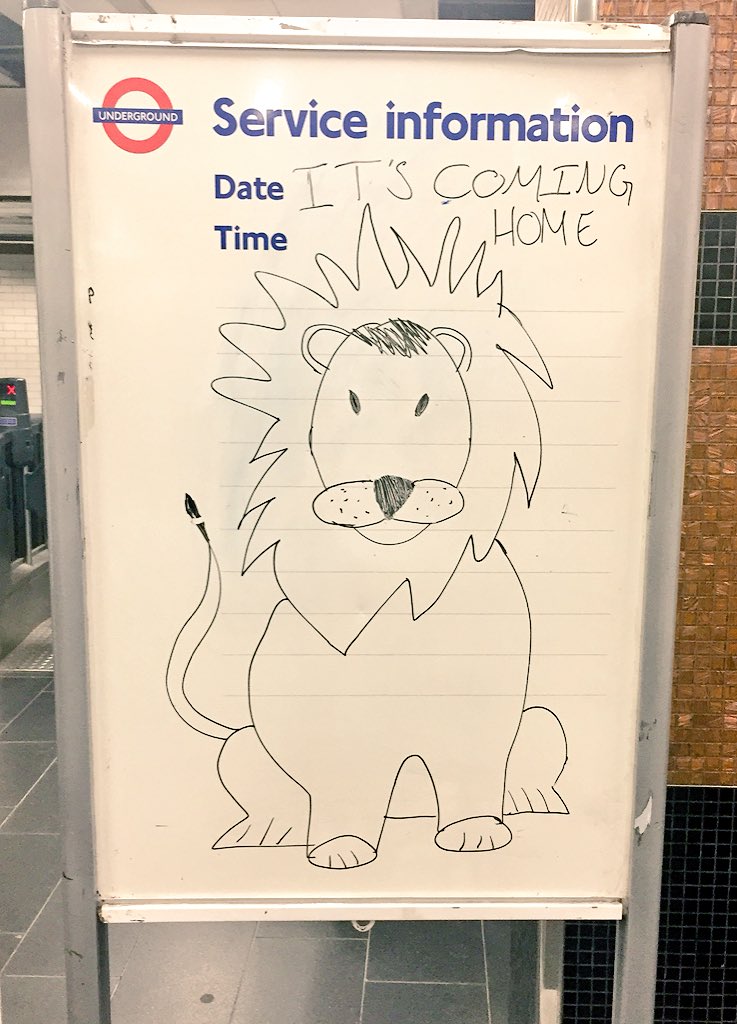 UNDERGROUND
Service information
Date IT'S COMING
Time HOME